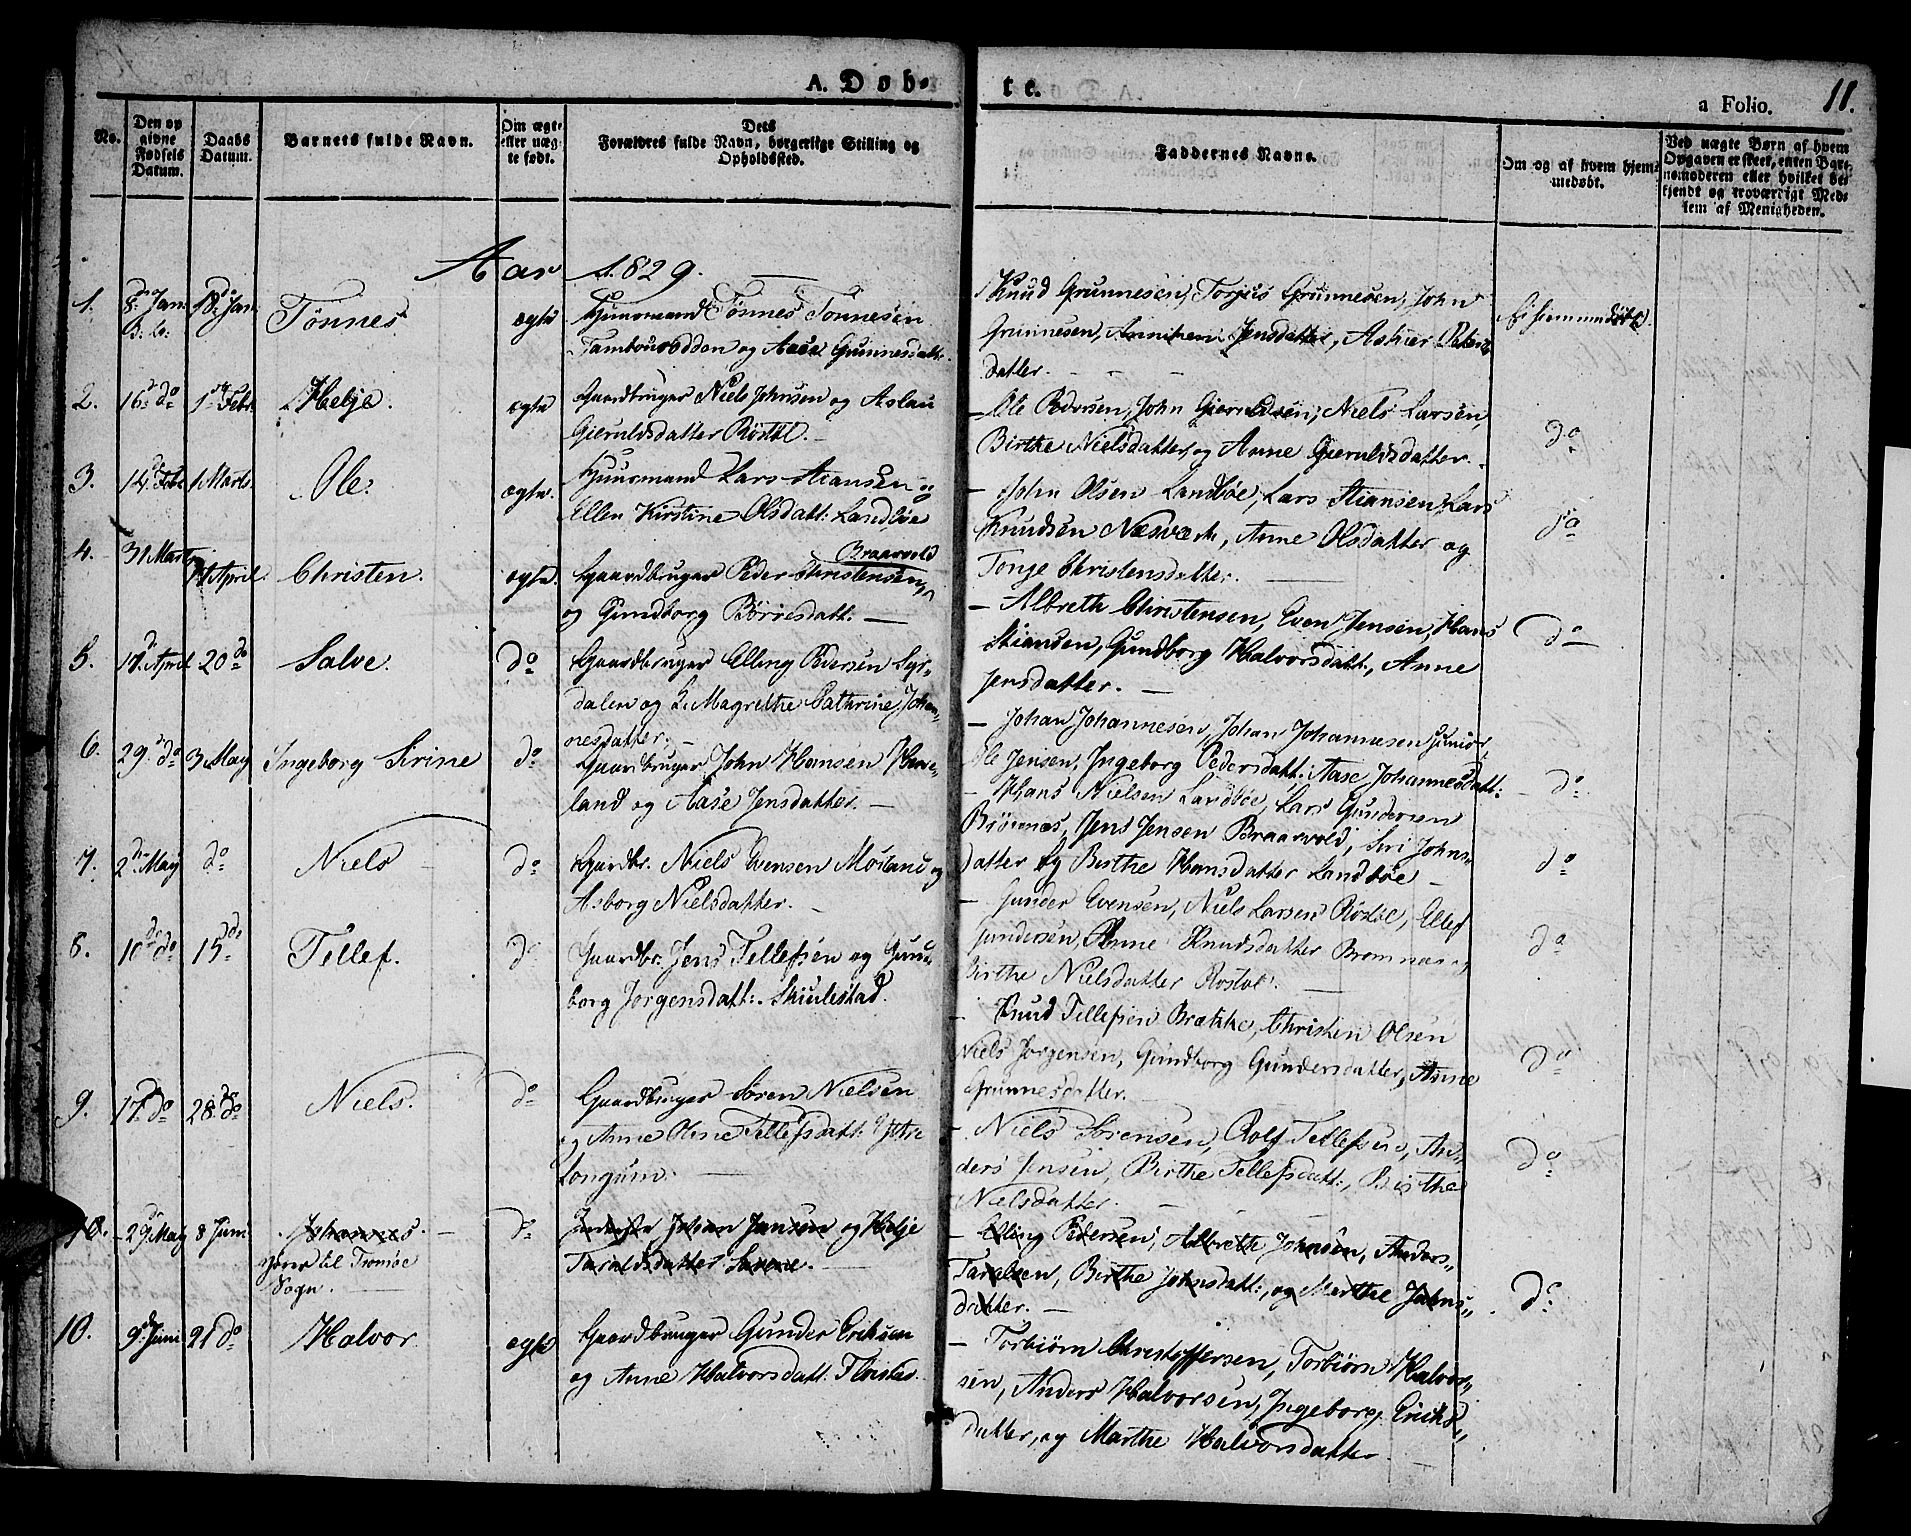 A. Døb-
te.
a Folio.
11.
No.
Den op
givne
Fødsels
Datum.
Daabs
Datum.
Barnets fulde Navn.
Om ægte
eller uæg-
te født.
Dets
Forældres fulde Navn, borgerlige Stilling og
Opholdssted.
Faddernes Navne.
Om og af hvem hjem-
medøbt.
Ved uægte Børn af hvem
Opgaven er skeet, enten Bar-
nsmoderen eller hvilket be-
kjendt og troværdigt Med-
lem af Menigheden.
Aar 1829.
1.
8de Jan:
18de Jan.
Tönnes
ægte
Huusmand Tönnes Tönnesen
og Aase Gunnesdatt.
Knud Grunnesen, Torjus Grunnesen, John
Grunnesen, Jensdatter, Peders
datter.
2.
16de do
1ste Febr.
Helje.
ægte
Gaardbruger Niels Johnsen og Aslau
Gieruldsdatter Röstöl.
- Ole Pedersen, John Gieruldsen, Niels Larsen,
Birthe Nielsdatter, og Anne Gieruldsdatter.
do
3.
14de Febr
1 Marts.
Ole.
ægte.
Huusmand Lars Stiansen og
Ellen Kirstine Olsdatt: Landböe
- John Olsen Landböe, Lars Stiansen, Lars
Knudsen Næsværk, Anne Olsdatter og
Tonje Christensdatter.
do
4.
31 Marts
April.
Christen.
ægte.
Braarvold
Gaardbruger Peder Christensen,
og Gundborg Börresdatt:
- Albreth Christensen, Even Jensen, Hans
Stiansen, Gundborg Halvorsdatt:, Anne
Jensdatter.
do
5.
17de April
20de
Salve.
do
Gaardbruger Elling Pedersen
dalen og Magrethe Cathrine Johan-
nesdatter.
- Johan Johannesen, Johan Johannesen junior,
Ole Jensen, Ingeborg Pedersdatt: Aase Johannesdatt:
do
6.
29de do
3 May
Ingeborg Sirine
do
Gaardbruger John Hansen
land og Aase Jensdatter.
- Hans Nielsen Landböe, Lars Gundersen
Jens Jensen Braarvold, Siri Johns-
datter og Birthe Hansdatter Landböe
do
7.
2den May
do
Niels
do
Gaardbr. Niels Evensen Mosland og
Asborg Nielsdatter.
- Gunder Evensen, Niels Larsen Röstöl, Ellef
Gundersen, Anne Knudsdatter Bromnæs og
Birthe Nielsdatter Röstöl.
do
8.
10de do
15de
Tellef.
do
Gaardbr. Jens Tellefsen og Gund-
borg Jörgensdatt:. Skiulestad.
- Knud Tellefsen Brække, Christen Olsen
Niels Jörgensen, Gundborg Gundersdatter, Anne
Grunnesdatter.
do
9.
17de do
28de do
Niels.
do
Gaardbruger Sören Nielsen
og Anne Oline Tellefsdatt: Ytre
Longum.
- Niels Sörensen, Rolf Tellefsen, An-
ders Jensen, Birthe Tellefsdatt:, Birthe
Nielsdatter.
do
10.
29de May
8 Juni
Johannes.
til Tromöe
Sogn.
do
Johan Jansen og Helje
Taraldsdatter
- Elling Pedersen, Albrethe Johnsen, Anders
Taralsen, Birthe Johnsdatt:, og Marthe Johns-
datter.
do
10.
9de Juni
21 do
Halvor
ægte
Gaardbruger Gunder Eriksen
og Anne Halvorsdatt: Flöistad.
- Torbiörn Christoffersen, Torbiörn Halvor-
sen, Anders Halvorsen, Ingeborg Eriks-
datter, og Marthe Halvorsdatter